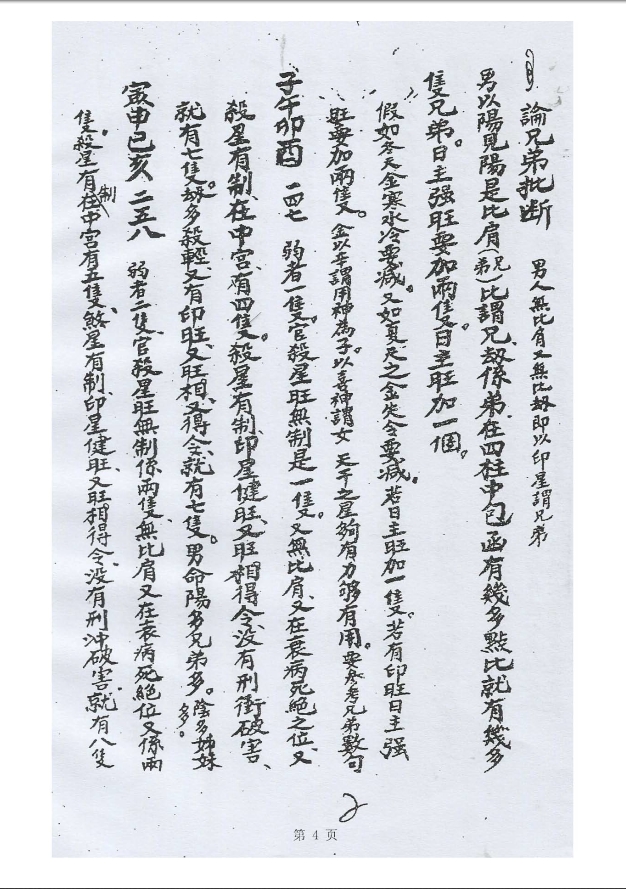 論兄弟批断 男人無比肩又無比劫即以印星謂兄弟
男以陽見陽是比肩(兄弟)比謂兄、劫係弟、在四柱中包函有幾多點比就有幾多
隻兄弟。日主强旺要加兩隻。日主旺加一個。
假如冬天金寒水冷要减。又如夏天之金失令要减。若日主旺加一隻。若有印旺日主强
旺要加兩隻。金以 謂用神為子。以喜神謂女 天干之星夠有力够有用。要参考兄弟數句
子午卯酉 一四七 弱者一隻。官殺星旺無制是一隻。又無比肩、又在衰病死絕之位、又
殺星有制、在中宫、有四隻。殺星有制、印星健旺、又旺相得令、没有刑衝破害、
就有七隻。劫多殺輕、又有印旺、又旺相、又得令、就有七隻。男命陽多兄弟多。陰多姊妹多。
寅申巳亥 二五八 弱者二隻、官殺星旺無制係兩隻、無比肩又在衰病死絕位又係兩
隻。殺星有制在中宫有五隻、煞星有制、印星健旺、又旺相得令、没有刑冲破害、就有八隻
2
第 4 页